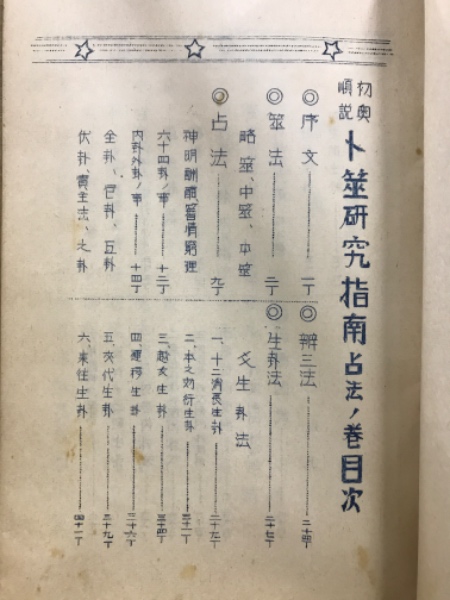 初奥順説 卜筮研究指南占法ノ巻目次
◎序文 一丁
◎筮法 二丁
略筮、中筮、中筮
◎占法 九丁
六十四卦ノ事 十二丁
内卦外卦ノ事 十四丁
全卦、包卦、互卦
伏卦、賓主法、之卦
◎辨三法 二十四丁
◎生卦法 二十七丁
爻生卦法
一、十二消長生卦 二十九丁
三十一丁
三、超爻生卦 三十四丁
四、運移生卦 三十六丁
五、交代生卦 三十九丁
六、来往生卦 四十一丁